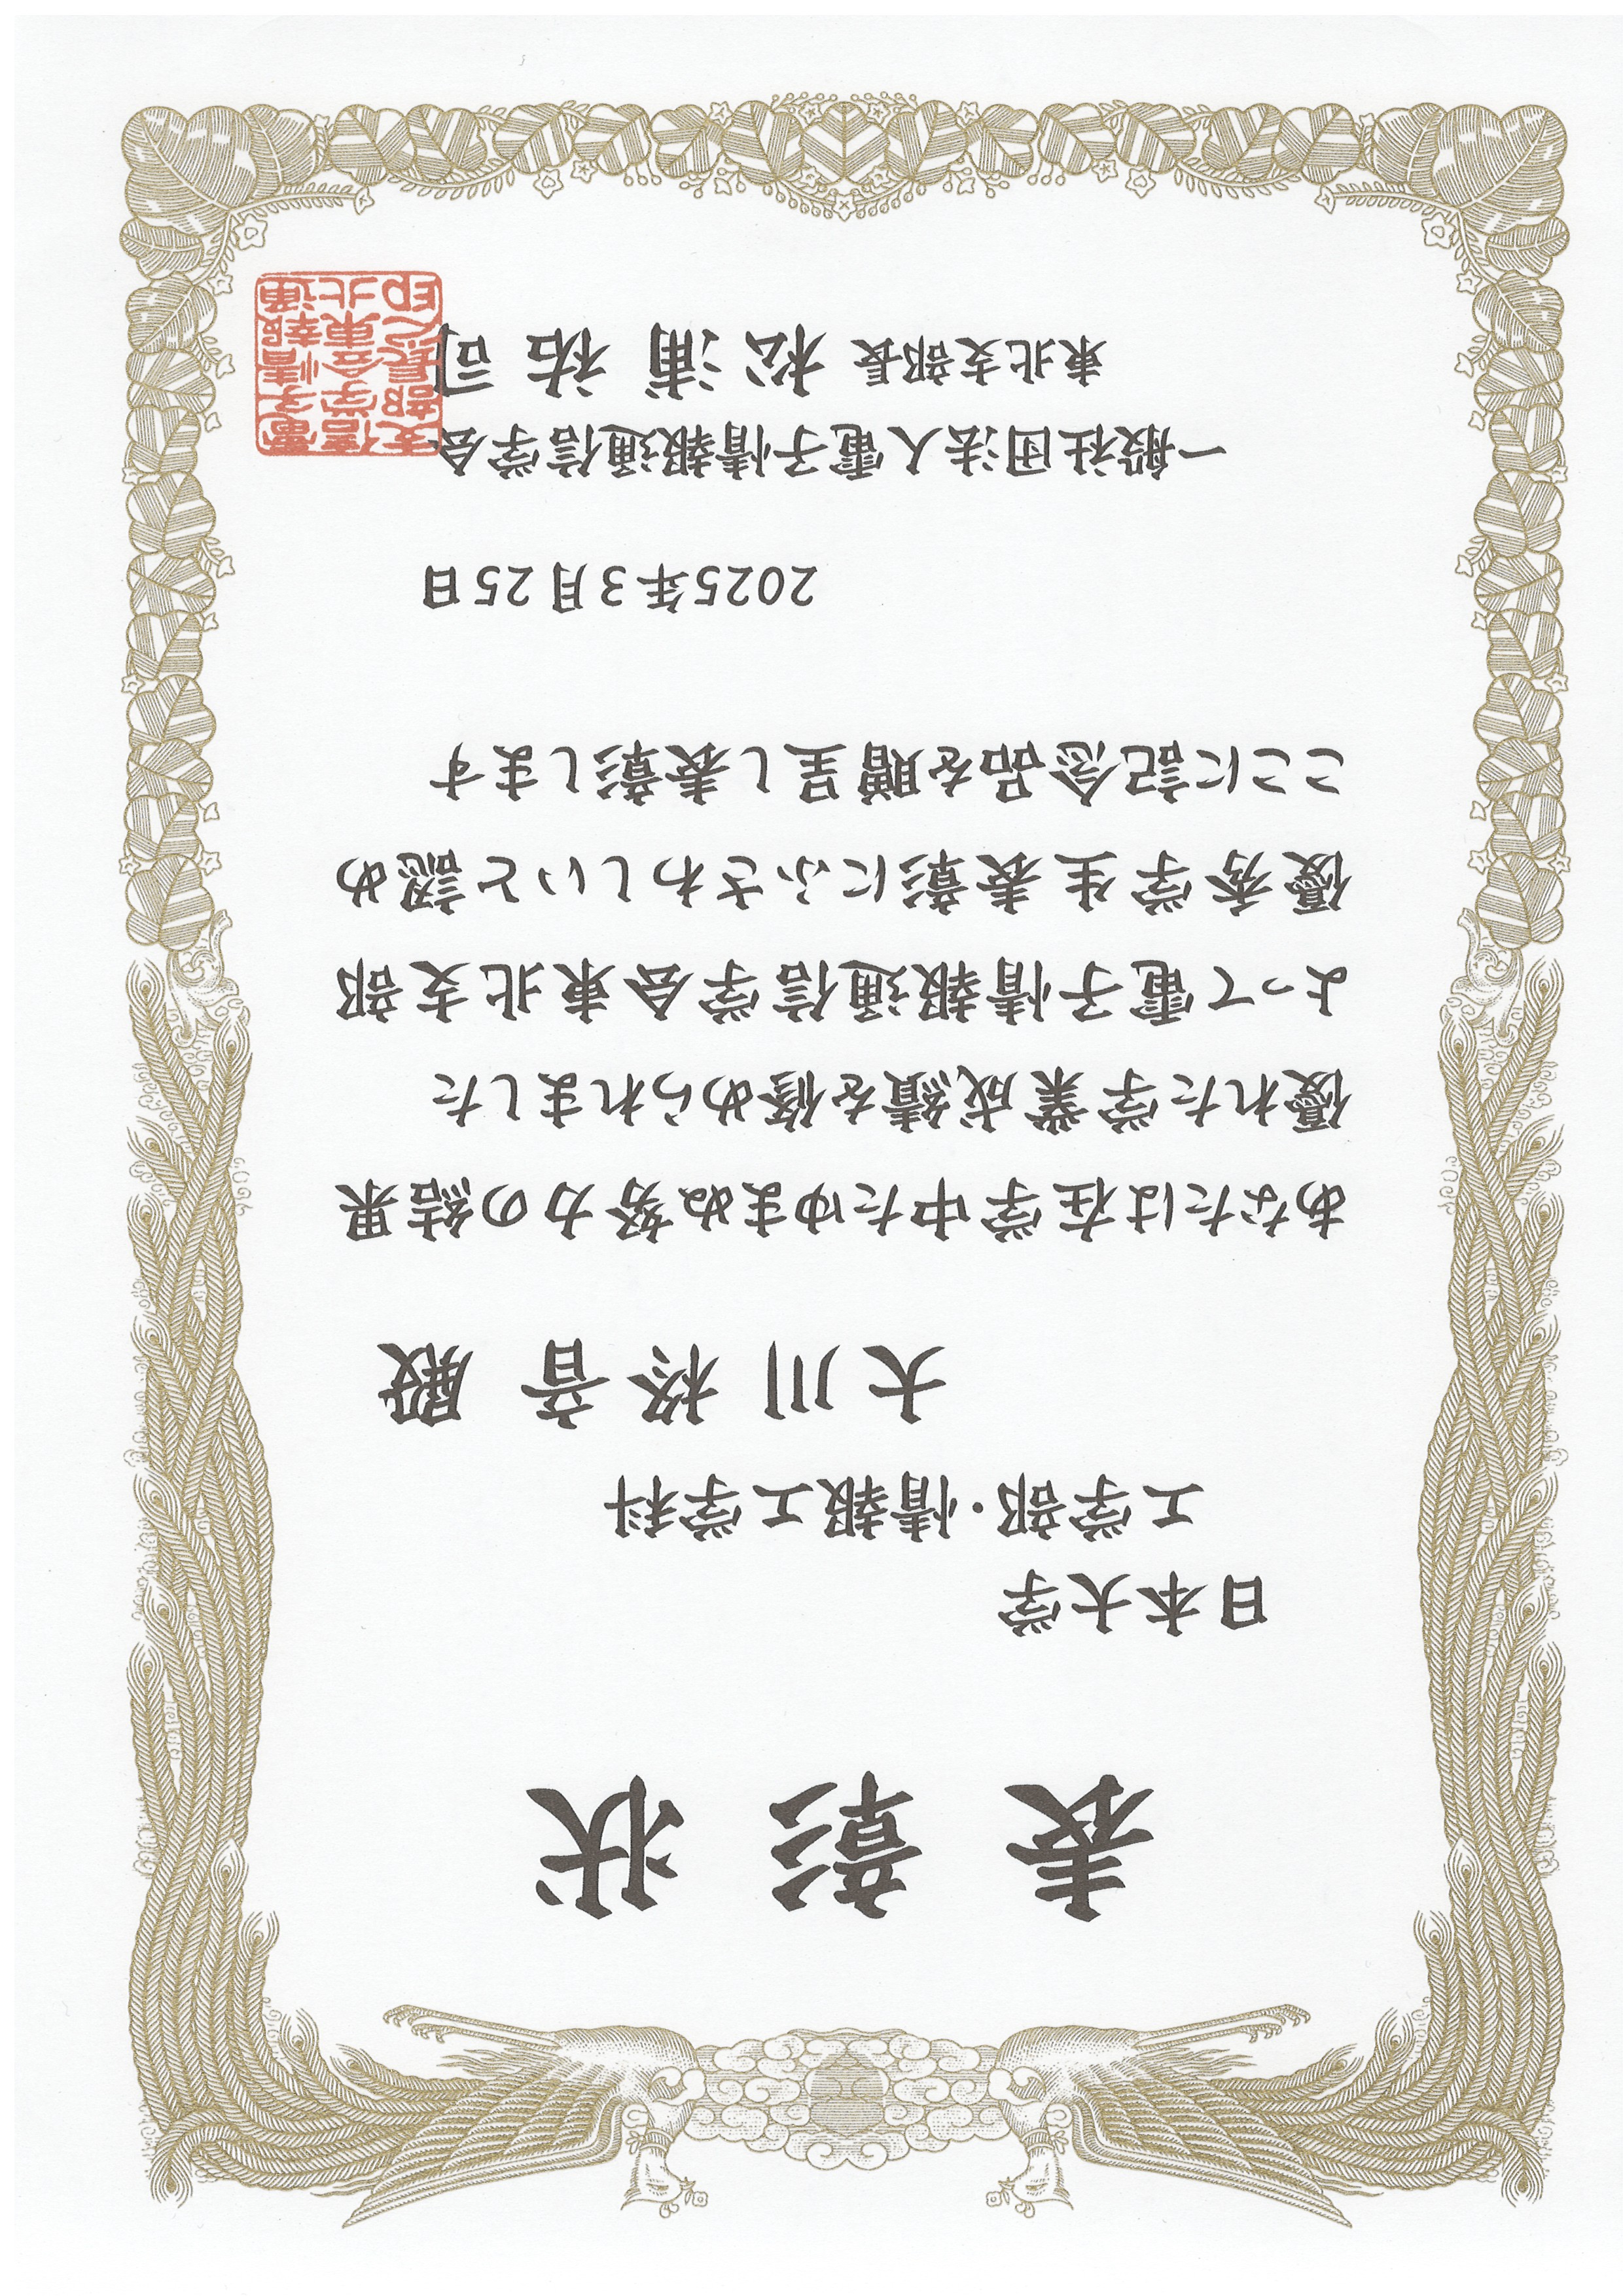 表彰状
日本大学
工学部・情報工学科
大川柊音 殿
あなたは在学中たゆまぬ努力の結果
優れた学業成績を修められました
よって電子情報通信学会東北支部
優秀学生表彰にふさわしいと認め
ここに記念品を贈呈し表彰します
2025年3月25日
一般社団法人電子情報通信学会
東北支部長 松浦祐司
電子情報通
信学会東北
支部長之印